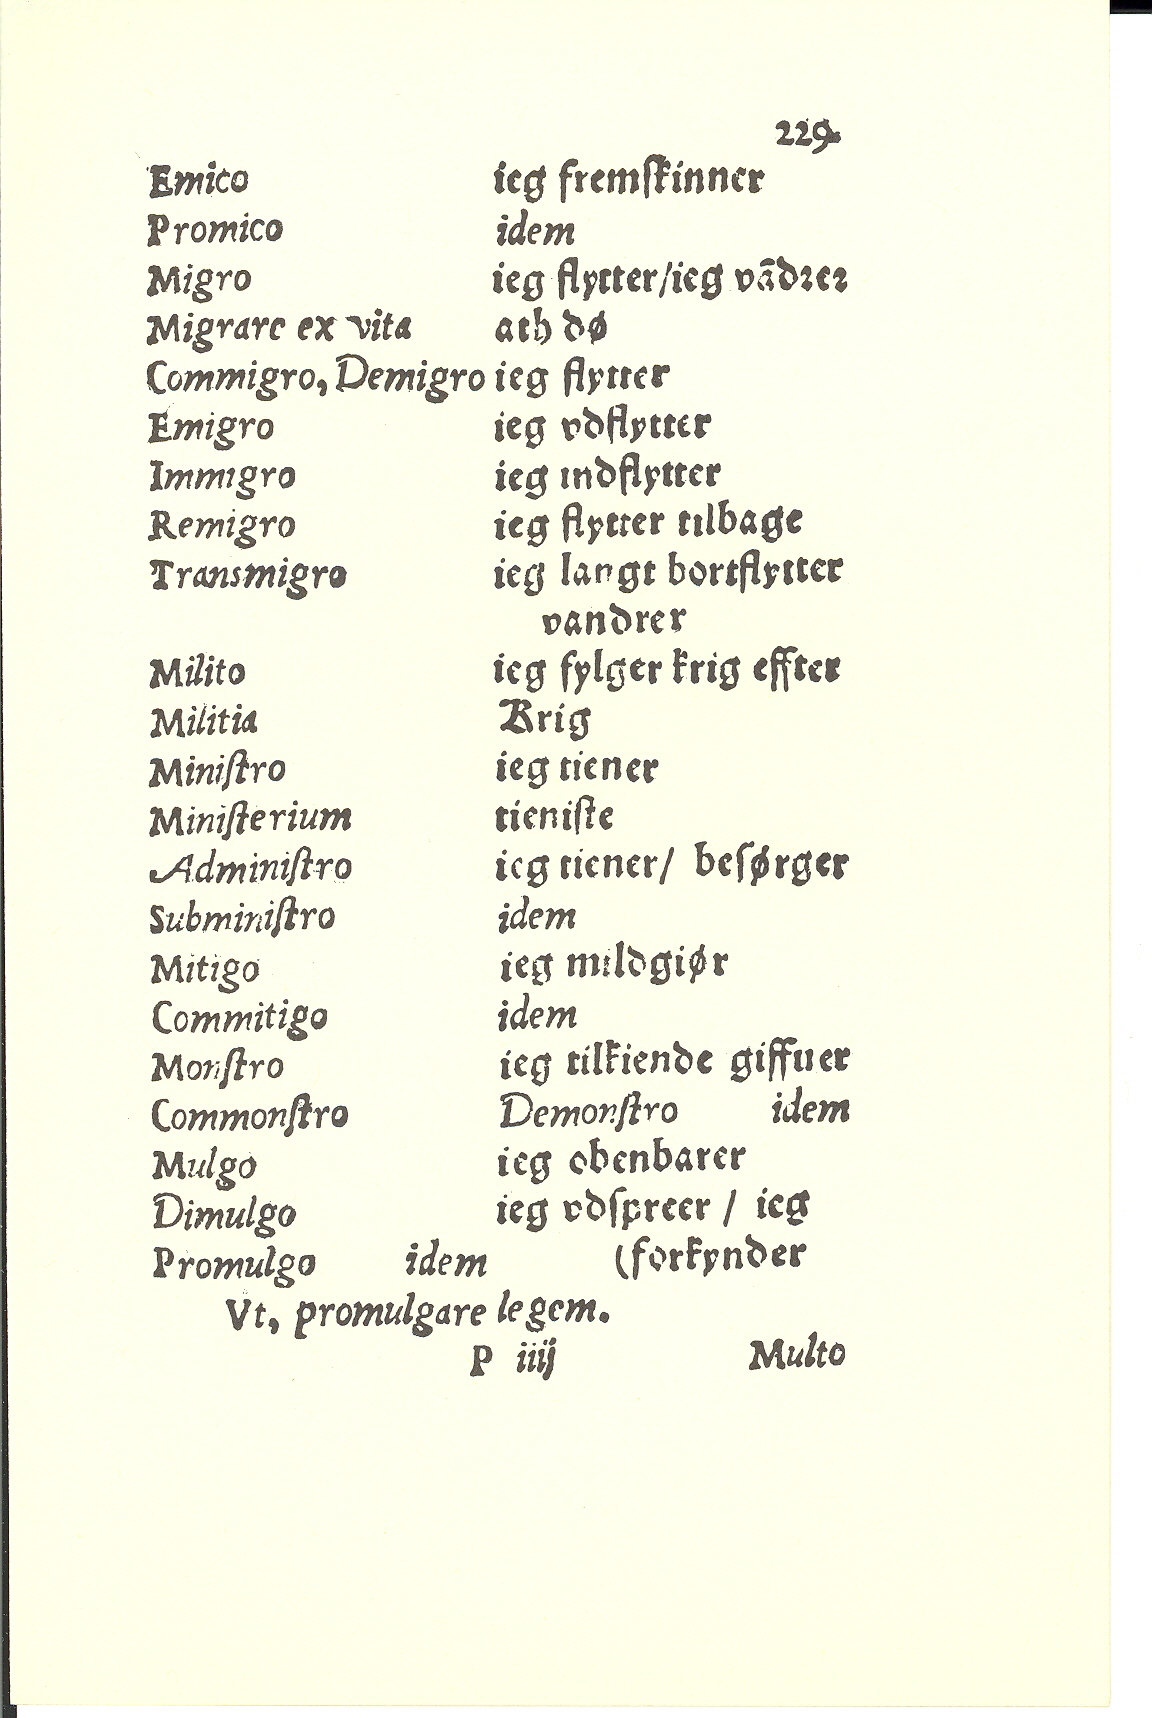 229.
Emico ieg fremſkinner
Promico idem
Migro ieg flytter/ieg vãdrer
Migrare ex vita ath dø
Commigro, Demigro ieg flytter
Emigro ieg vdflytter
Immigro ieg indflytter
Remigro ieg flytter tilbage
Transmigro ieg langt bortflytter
vandrer
Milito ieg fylger krig effter
Militia Krig
Miniſtro ieg tiener
Miniſterium tieniſte
Adminiſtro ieg tiener/ beſørger
Subminiſtro idem
Mitigo ieg mildgiør
Commitigo idem
Monſtro ieg tilkiende giffuer
Commonſtro Demonſtro idem
Mulgo ieg obenbarer
Dimulgo ieg vdſpreer / ieg
Promulgo idem (forkynder
Vt, promulgare legem.
P iiij Multo